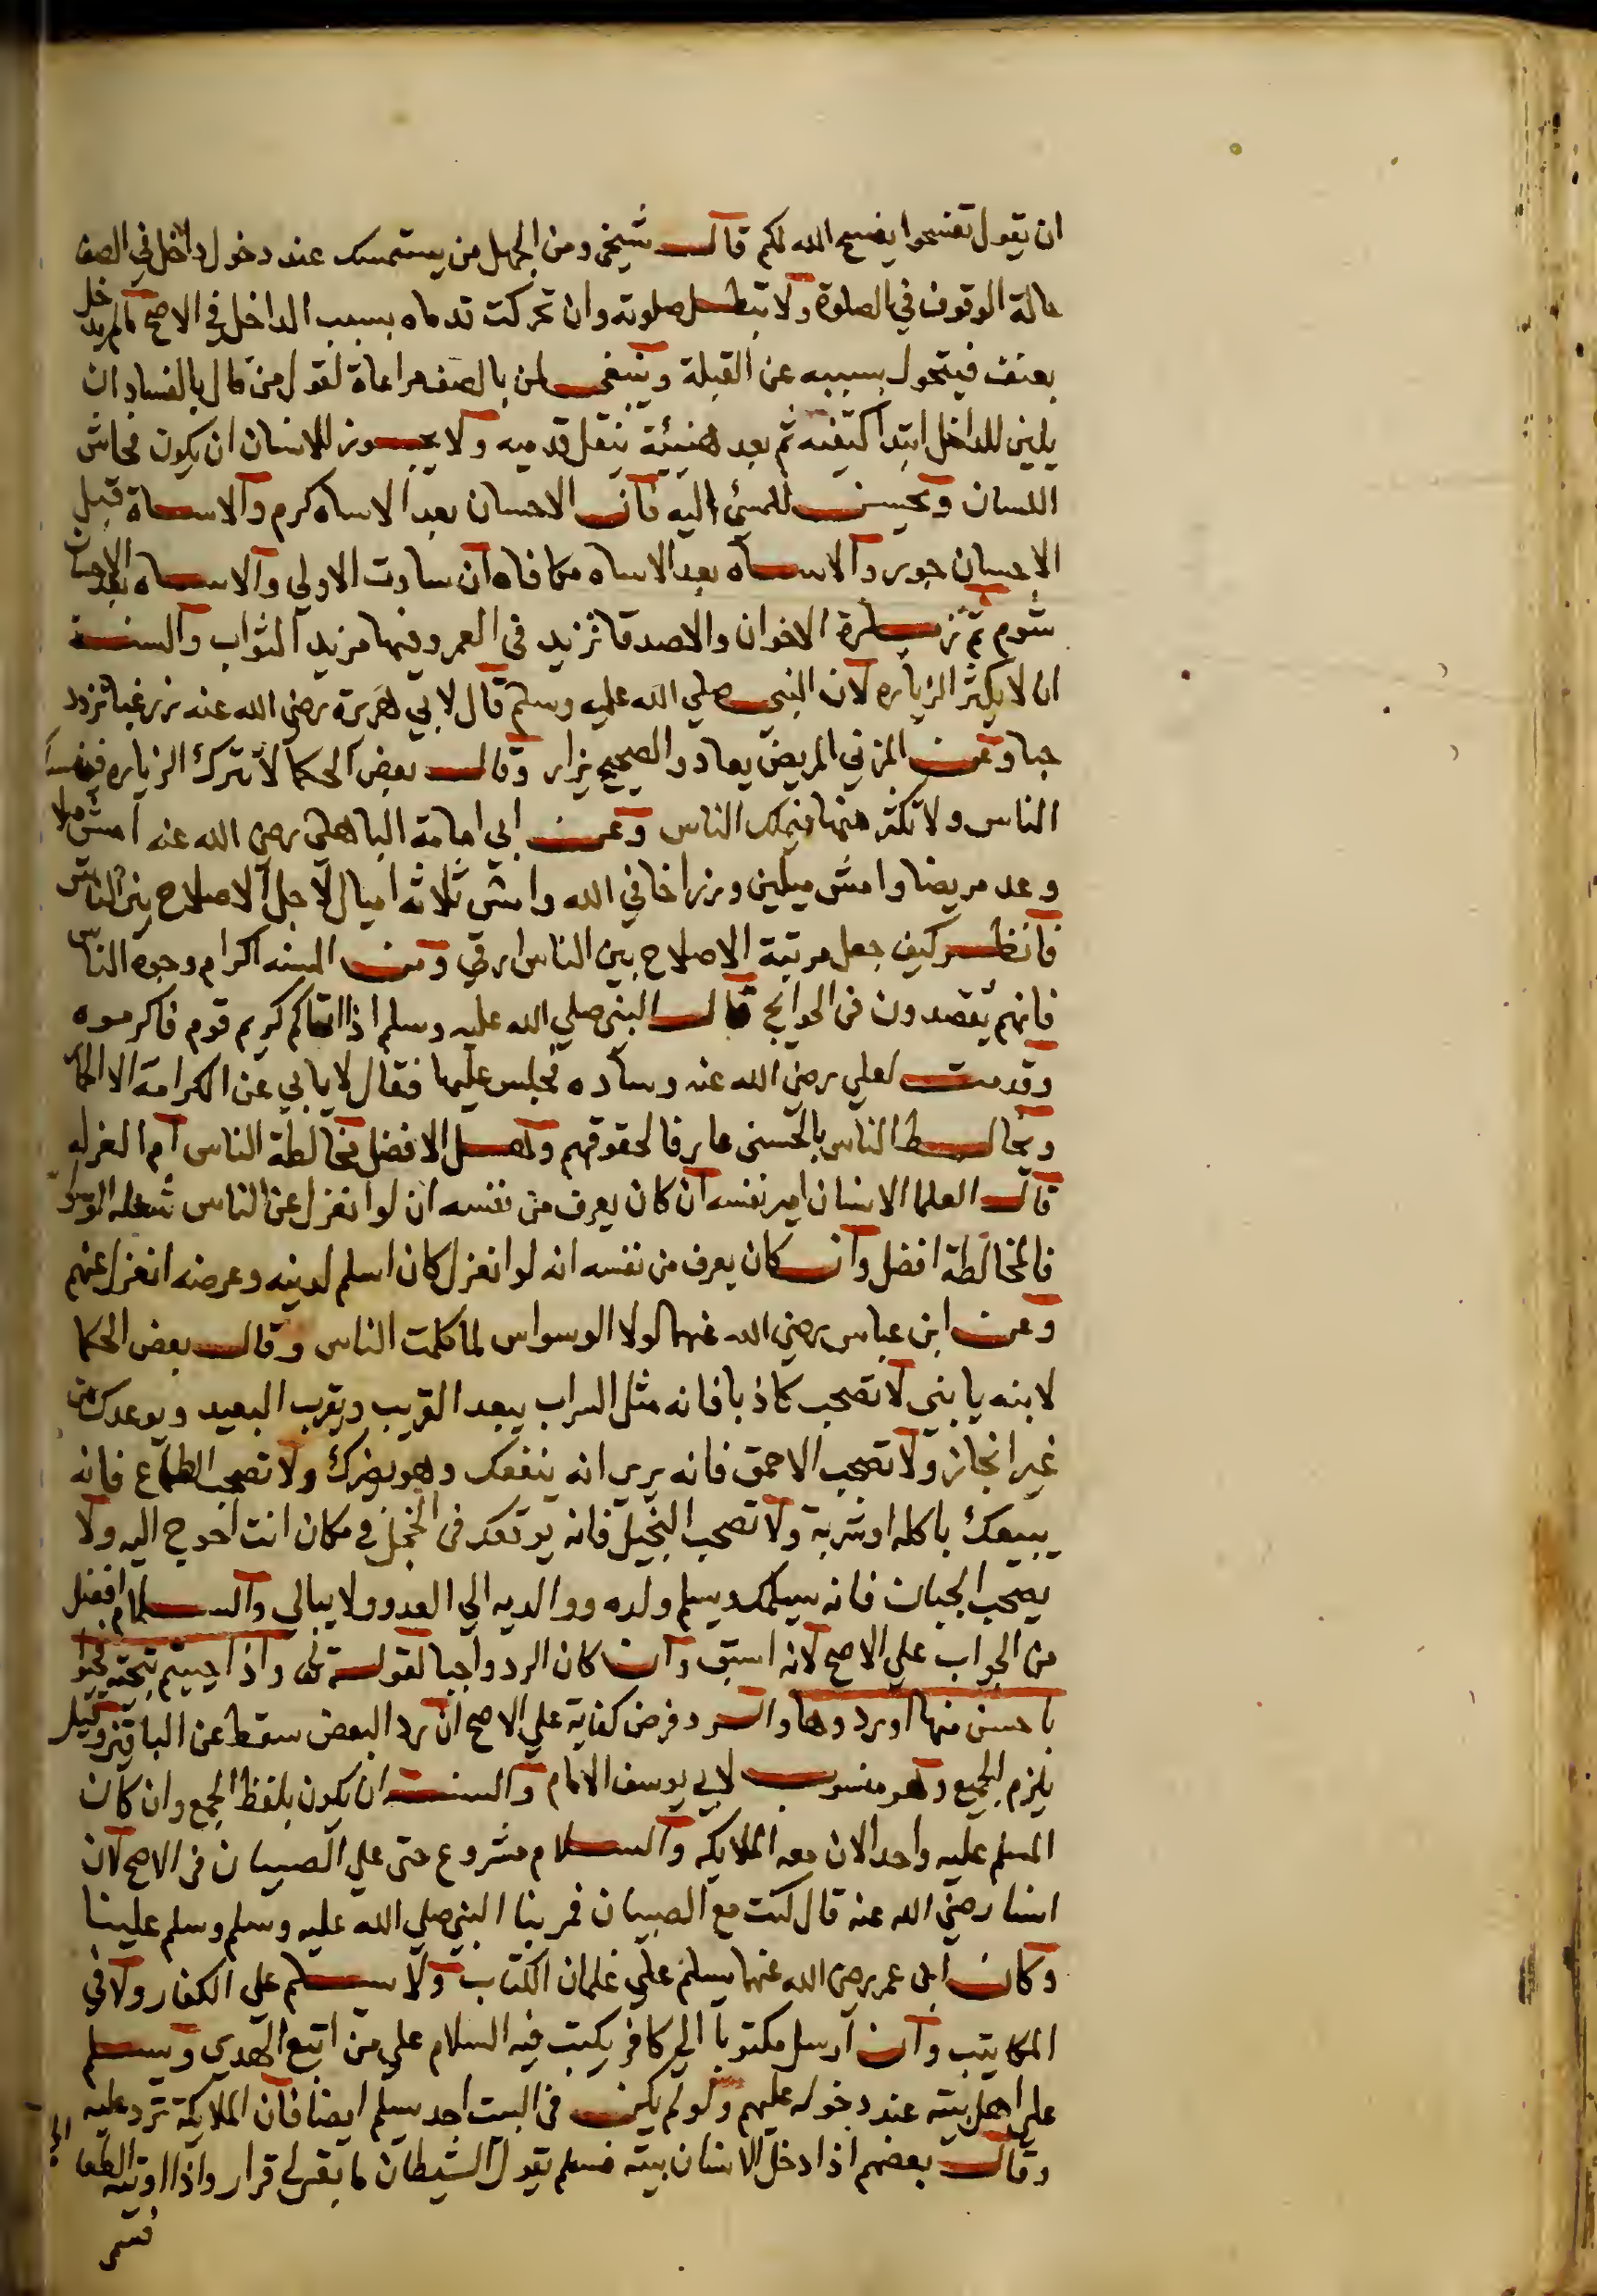 ان يقول تفسحوا يفسح الله لكم قال شيخي ومن الجهل من يستمسك عند دخول داخل في الصف
حالة الوقوف في الصلوة ولا تبطل صلوته وان تحركت قدماه بسبب الداخل في الاصح مالم يدخل
بعنف فيتحول بسببه عن القبلة وينبغي لمن بالصف مراعاة لقول من قال بالفساد ان
يلين للداخل ابتدا كتفه ثم بعد هنيئة ينقل قدميه ولا يجوز للانسان ان يكون فحاش
اللسان ويحسن للمسئ اليه فان الاحسان بعد الاساه كرم والاساة قبل
الاحسان جور والاساه بعد الاساه مكافاه ان ساوت الاولي والاساه بعد الاحسان
شوم ثم زيارة الاخوان والاصدقا تزيد في العمر وفيها مزيد الثواب والسنة
ان لا يكثر الزياره لان النبي صلي الله عليه وسلم قال لابي هريرة رضي الله عنه زر غبا تزدد
حبا وعن المزني المريض يعاد والصحيح يزار وقال بعض الحكما لا تترك الزياره فينسك
الناس ولا تكثر منها فيملك الناس وعن ابي امامة الباهلي رضي الله عنه امش ميلا
وعد مريضا وامش ميلين وزر اخا في الله وامش ثلاثة اميال لاجل الاصلاح بين الناس
فانظر كيف جعل مرتبة الاصلاح بين الناس ارقي ومن السنه اكرام وجوه الناس
فانهم يقصدون في الحوايج قال النبي صلي الله عليه وسلم اذا اتاكم كريم قوم فاكرموه
وقدمت لعلي رضي الله عنه وساده فجلس عليها فقال لا يابي عن الكرامة الا الحمار
ويخالط الناس بالحسني عارفا لحقوقهم وهل الافضل مخالطة الناس ام العزله
قال العلما الانسان امير نفسه ان كان يعرف من نفسه ان لو انعزل عن الناس شغله الوسواس
فالمخالطة افضل وان كان يعرف من نفسه انه لو انعزل كان اسلم لدينه وعرضه انعزل عنهم
وعن ابن عباس رضي الله عنهما لولا الوسواس لما كلمت الناس وقال بعض الحكما
لابنه يا بني لا تصحب كاذبا فانه مثل السراب يبعد القريب ويقرب البعيد ويوعدك من
غير انجاز ولا تصحب الاحمق فانه يري انه ينفعك وهو يضرك ولا تصحب الطماع فانه
يبيعك باكله او شربة ولا تصحب البخيل فانه يوقعك في الخجل في مكان انت احوج اليه ولا
يصحب الجبان فانه سيلمك ويسلم ولده ووالديه الي العدو ولا يبالي والسلام افضل
من الجواب علي الاصح لانه اسبق وان كان الرد واجبا لقوله تعالى واذا حييتم بتحية فحيوا
باحسن منها او ردوها والرد فرض كفاية علي الاصح ان رد البعض سقط عن الباقين وقيل
يلزم الجميع وهو منسوب لابي يوسف الامام والسنة ان يكون بلفظ الجمع وان كان
المسلم عليه واحدا لان معه الملايكه والسلام مشروع حتي علي الصبيان في الاصح لان
انسا رضي الله عنه قال كنت مع الصبيان فمر بنا النبي صلي الله عليه وسلم وسلم علينا
وكان ابن عمر رضي الله عنهما يسلم علي غلمان الكتاب ولا يسلم علي الكفار ولا في
المكاتيب وان ارسل مكتوبا الي كافر يكتب فيه السلام علي من اتبع الهدي ويسلم
علي اهل بيته عند دخوله عليهم ولو لم يكن في البيت احد يسلم ايضا فان الملايكة ترد عليه
وقال بعضهم اذا دخل الانسان بيته فسلم يقول الشيطان ما بقي لي قرار واذا اوتي الطعام